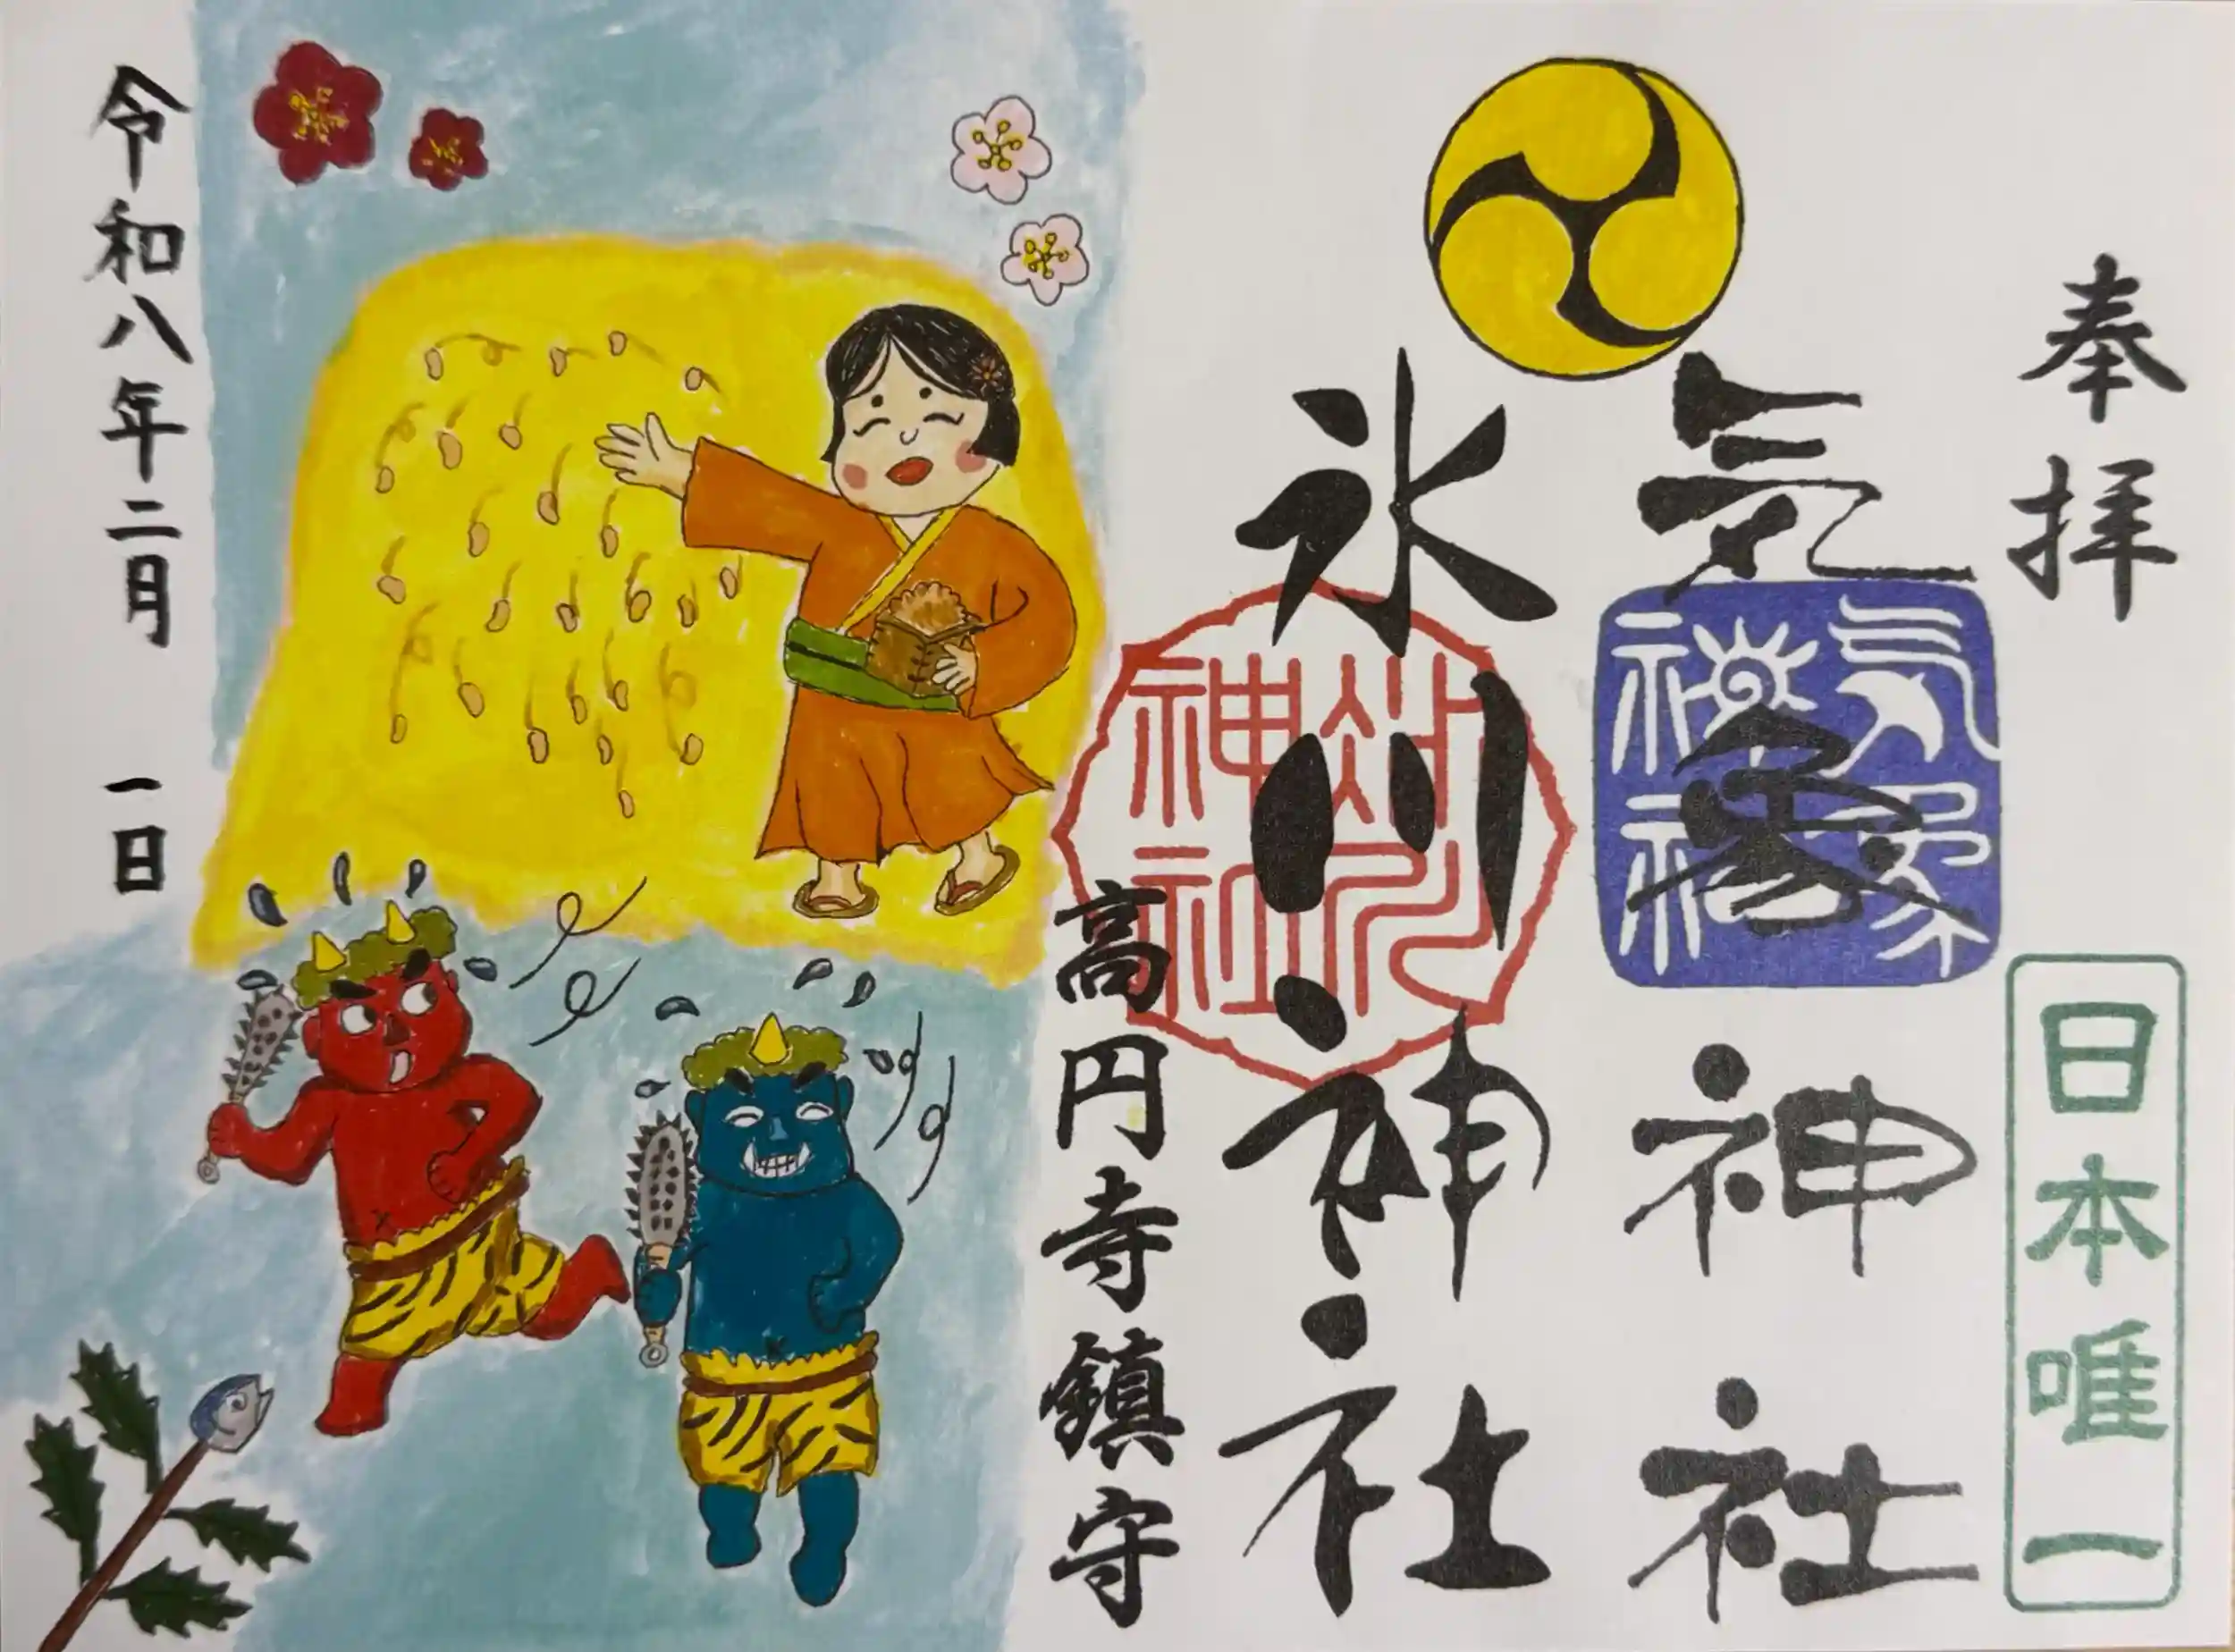 奉拝
日本唯一
気象神社
気象神社
氷川神社
氷川神社
高円寺鎮守
令和八年二月 一日